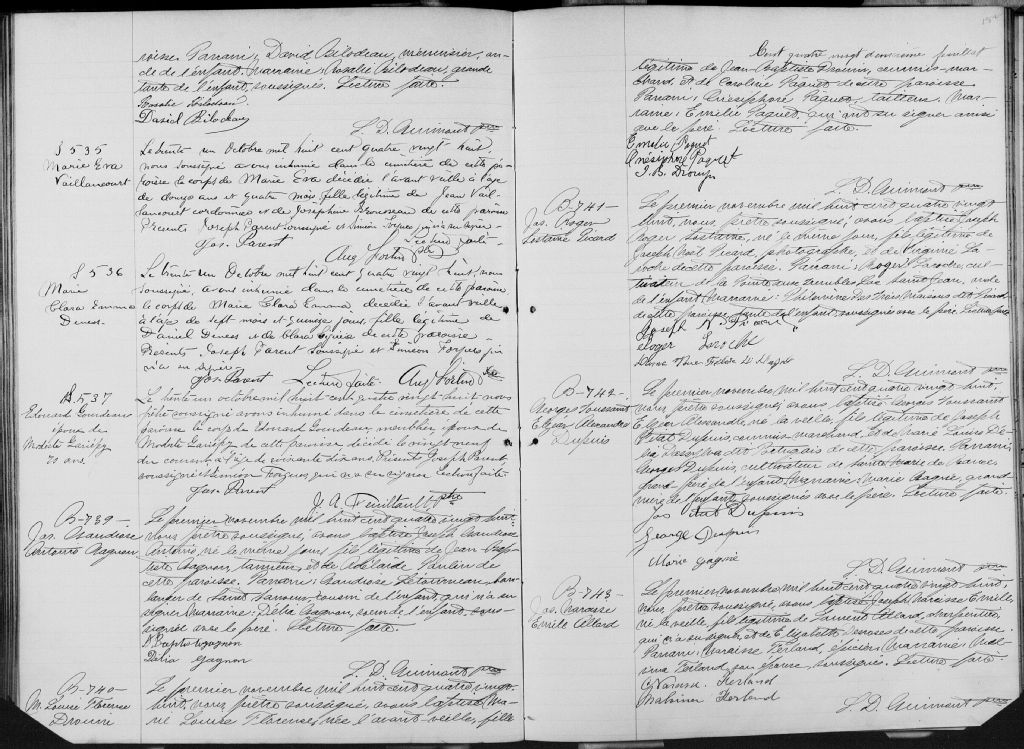 roisse. Parrain, David Bilodeau, menuisier, on-
cle de l'enfant. Marraine, Rosalie Bilodeau, grande
tante de l'enfant, soussignés. Lecture faite.
Rosalie Bilodeau
David Bilodeau
L. D. Guimont ptre
S 535
Marie Eva
Vaillancourt
Le trente un Octobre mil huit cent quatre vingt huit,
nous soussigné avons inhumé dans le cimetière de cette pa-
roisse le corps de Marie Eva décédée l'avant veille à l'age
de douze ans et quatre mois fille légitime de Jean Vail-
lancourt cordonnier et de Josephine Brousseau de cette paroisse
Présents Joseph Parent soussigné et Siméon Forgues qui n'a su signer
Lecture faite
Jos. Parent
Aug Fortin Ptre
S 536
Marie
Clara Emma
Le trente un Octobre mil huit cent quatre vingt huit, nous
soussigné, avons inhumé dans le cimetière de cette paroisse
le corps de Marie Clara Emma décédée l'avant veille
à l'age de sept mois et quinze jours, fille légitime de
Daniel et de Clara de cette paroisse
Présents Joseph Parent soussigné et Siméon Forgues qui
n'a su signer
Jos Parent Lecture faite. Aug Fortin Ptre
S. 537
Edouard Gourdeau
époux de
Modeste Gariépy
70 ans
Le trente un octobre mil huit cent quatre vingt huit nous
prêtre soussigné avons inhumé dans le cimetière de cette
paroisse le corps d'Edouard Gourdeau, meublier époux de
Modeste Gariépy de cette paroisse décédé le vingt neuf
du courant à l'age de soixante dix ans. Présents Joseph Parent
soussigné et Siméon Forgues qui n'a su signer Lecture faite
Jos Parent
J A Feuiltault Ptre
B-739-
Jos. Gaudiose
Antonio Gagnon
Le premier novembre mil huit cent quatre vingt huit,
nous prêtre soussigné, avons baptisé Joseph Gaudiose
Antonio, né le même jour, fils légitime de Jean-Bap-
tiste Gagnon, tanneur, et de Adelaïde Paulin de
cette paroisse. Parrain: Gaudiose Létourneau, bou-
langer de Saint Sauveur, cousin de l'enfant, qui n'a su
signer. Marraine: Delia Gagnon, soeur de l'enfant, sous-
signée avec le père. Lecture faite.
J Baptis Gagnon
Dalia Gagnon
L. D. Guimont ptre
B-740-
M. Louise Florence
Drouin
Le premier novembre mil huit cent quatre vingt
huit, nous prêtre soussigné, avons baptisé Ma-
rie Louise Florence, née l'avant-veille, fille
Cent quatre vingt deuxième feuillet
légitime de Jean-Baptiste Drouin, commis-mar-
chand, et de Caroline Paquet de cette paroisse
Parrain: Onésiphore Paquet, tailleur. Mar-
raine: Emilie Paquet, qui ont su signer ainsi
que le père. Lecture faite.
Emilie Paquet
Onésiphore Paquet
J. B. Drouin
L. D. Guimont ptre
B-741-
Jos. Roger
Lostaine Picard
Le premier novembre mil huit cent quatre vingt
huit, nous, prêtre soussigné, avons baptisé Joseph
Roger Lostaine, né le même jour, fils légitime de
Joseph Noël Picard, photographe, et de Virginie La-
roche de cette paroisse. Parrain: Roger Laroche, cul-
tivateur de la Pointe aux Trembles
de l'enfant. Marraine:
de cette paroisse, tante de l'enfant, soussignés avec le père. Lecture faite
Joseph N. Picard
Roger Laroche
L. D. Guimont ptre
B-742-
Georges Toussaint
Elzéar Alexandre
Dupuis
Le premier novembre, mil huit cent quatre vingt huit,
nous prêtre soussigné, avons baptisé Georges Toussaint
Elzéar Alexandre, né la veille, fils légitime de Joseph
Pitat Dupuis, commis marchand, et de Marie Louise
de cette paroisse. Parrain:
Georges Dupuis, cultivateur de Sainte Marie de Beauce
grand père de l'enfant. Marraine: Marie Gagné, grand
mère de l'enfant, soussignés avec le père. Lecture faite.
Dupuis
George Dupuis
Marie Gagné
L. D. Guimont ptre
B-743-
Jos. Narcisse
Emile Allard
Le premier novembre, mil huit cent quatre vingt huit,
nous, prêtre soussigné, avons baptisé Joseph Narcisse Emile,
né la veille, fils légitime de Laurent Allard, charpentier,
qui n'a su signer, et de Elizabeth de cette paroisse.
Parrain: Narcisse Ferland, épicier. Marraine:
Ferland, son épouse, soussignés. Lecture faite.
Ferland
Ferland
L. D. Guimont ptre